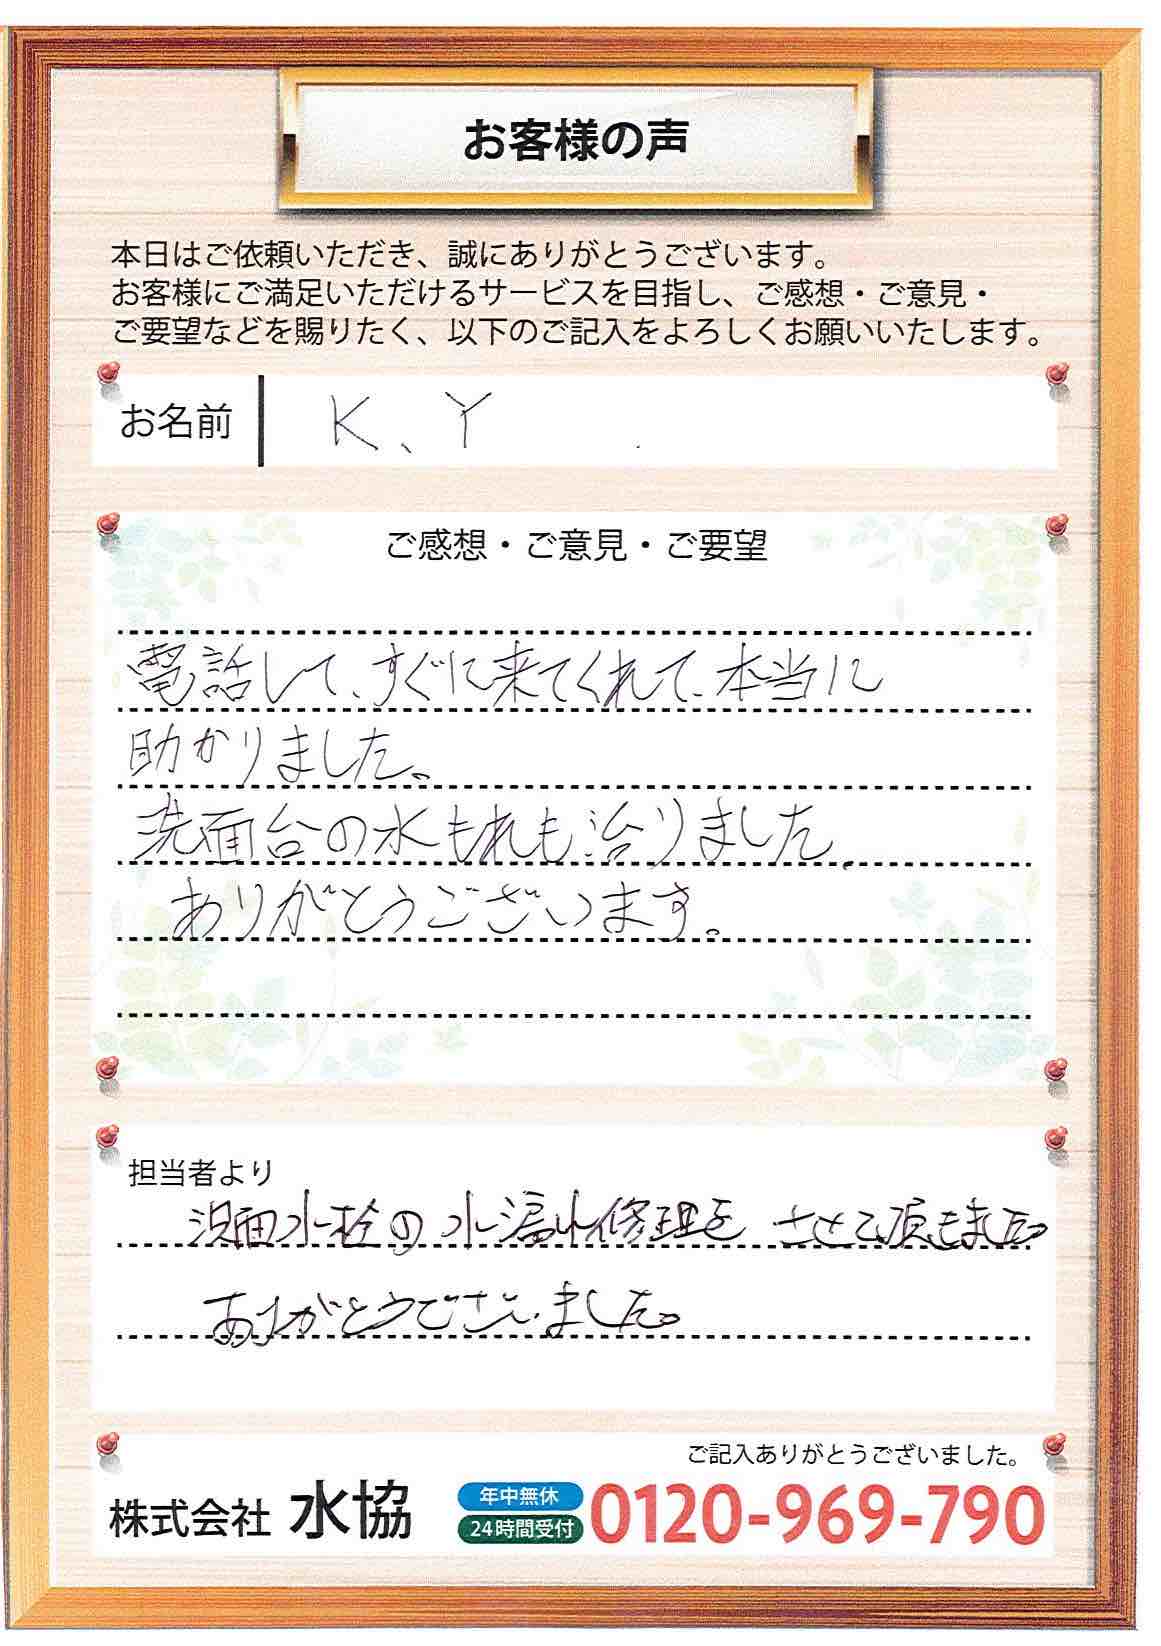 お客様の声
本日はご依頼いただき、誠にありがとうございます。
お客様にご満足いただけるサービスを目指し、ご感想・ご意見・
ご要望などを賜りたく、以下のご記入をよろしくお願いいたします。
お名前 K、Y
ご感想・ご意見・ご要望
電話して、すぐに来てくれて、本当に
助かりました。
洗面台の水もれも治りました。
ありがとうございます。
担当者より
洗面水栓の水漏れ修理をさせて頂きました。
ありがとうございました。
ご記入ありがとうございました。
株式会社 水協 年中無休 24時間受付 0120-969-790